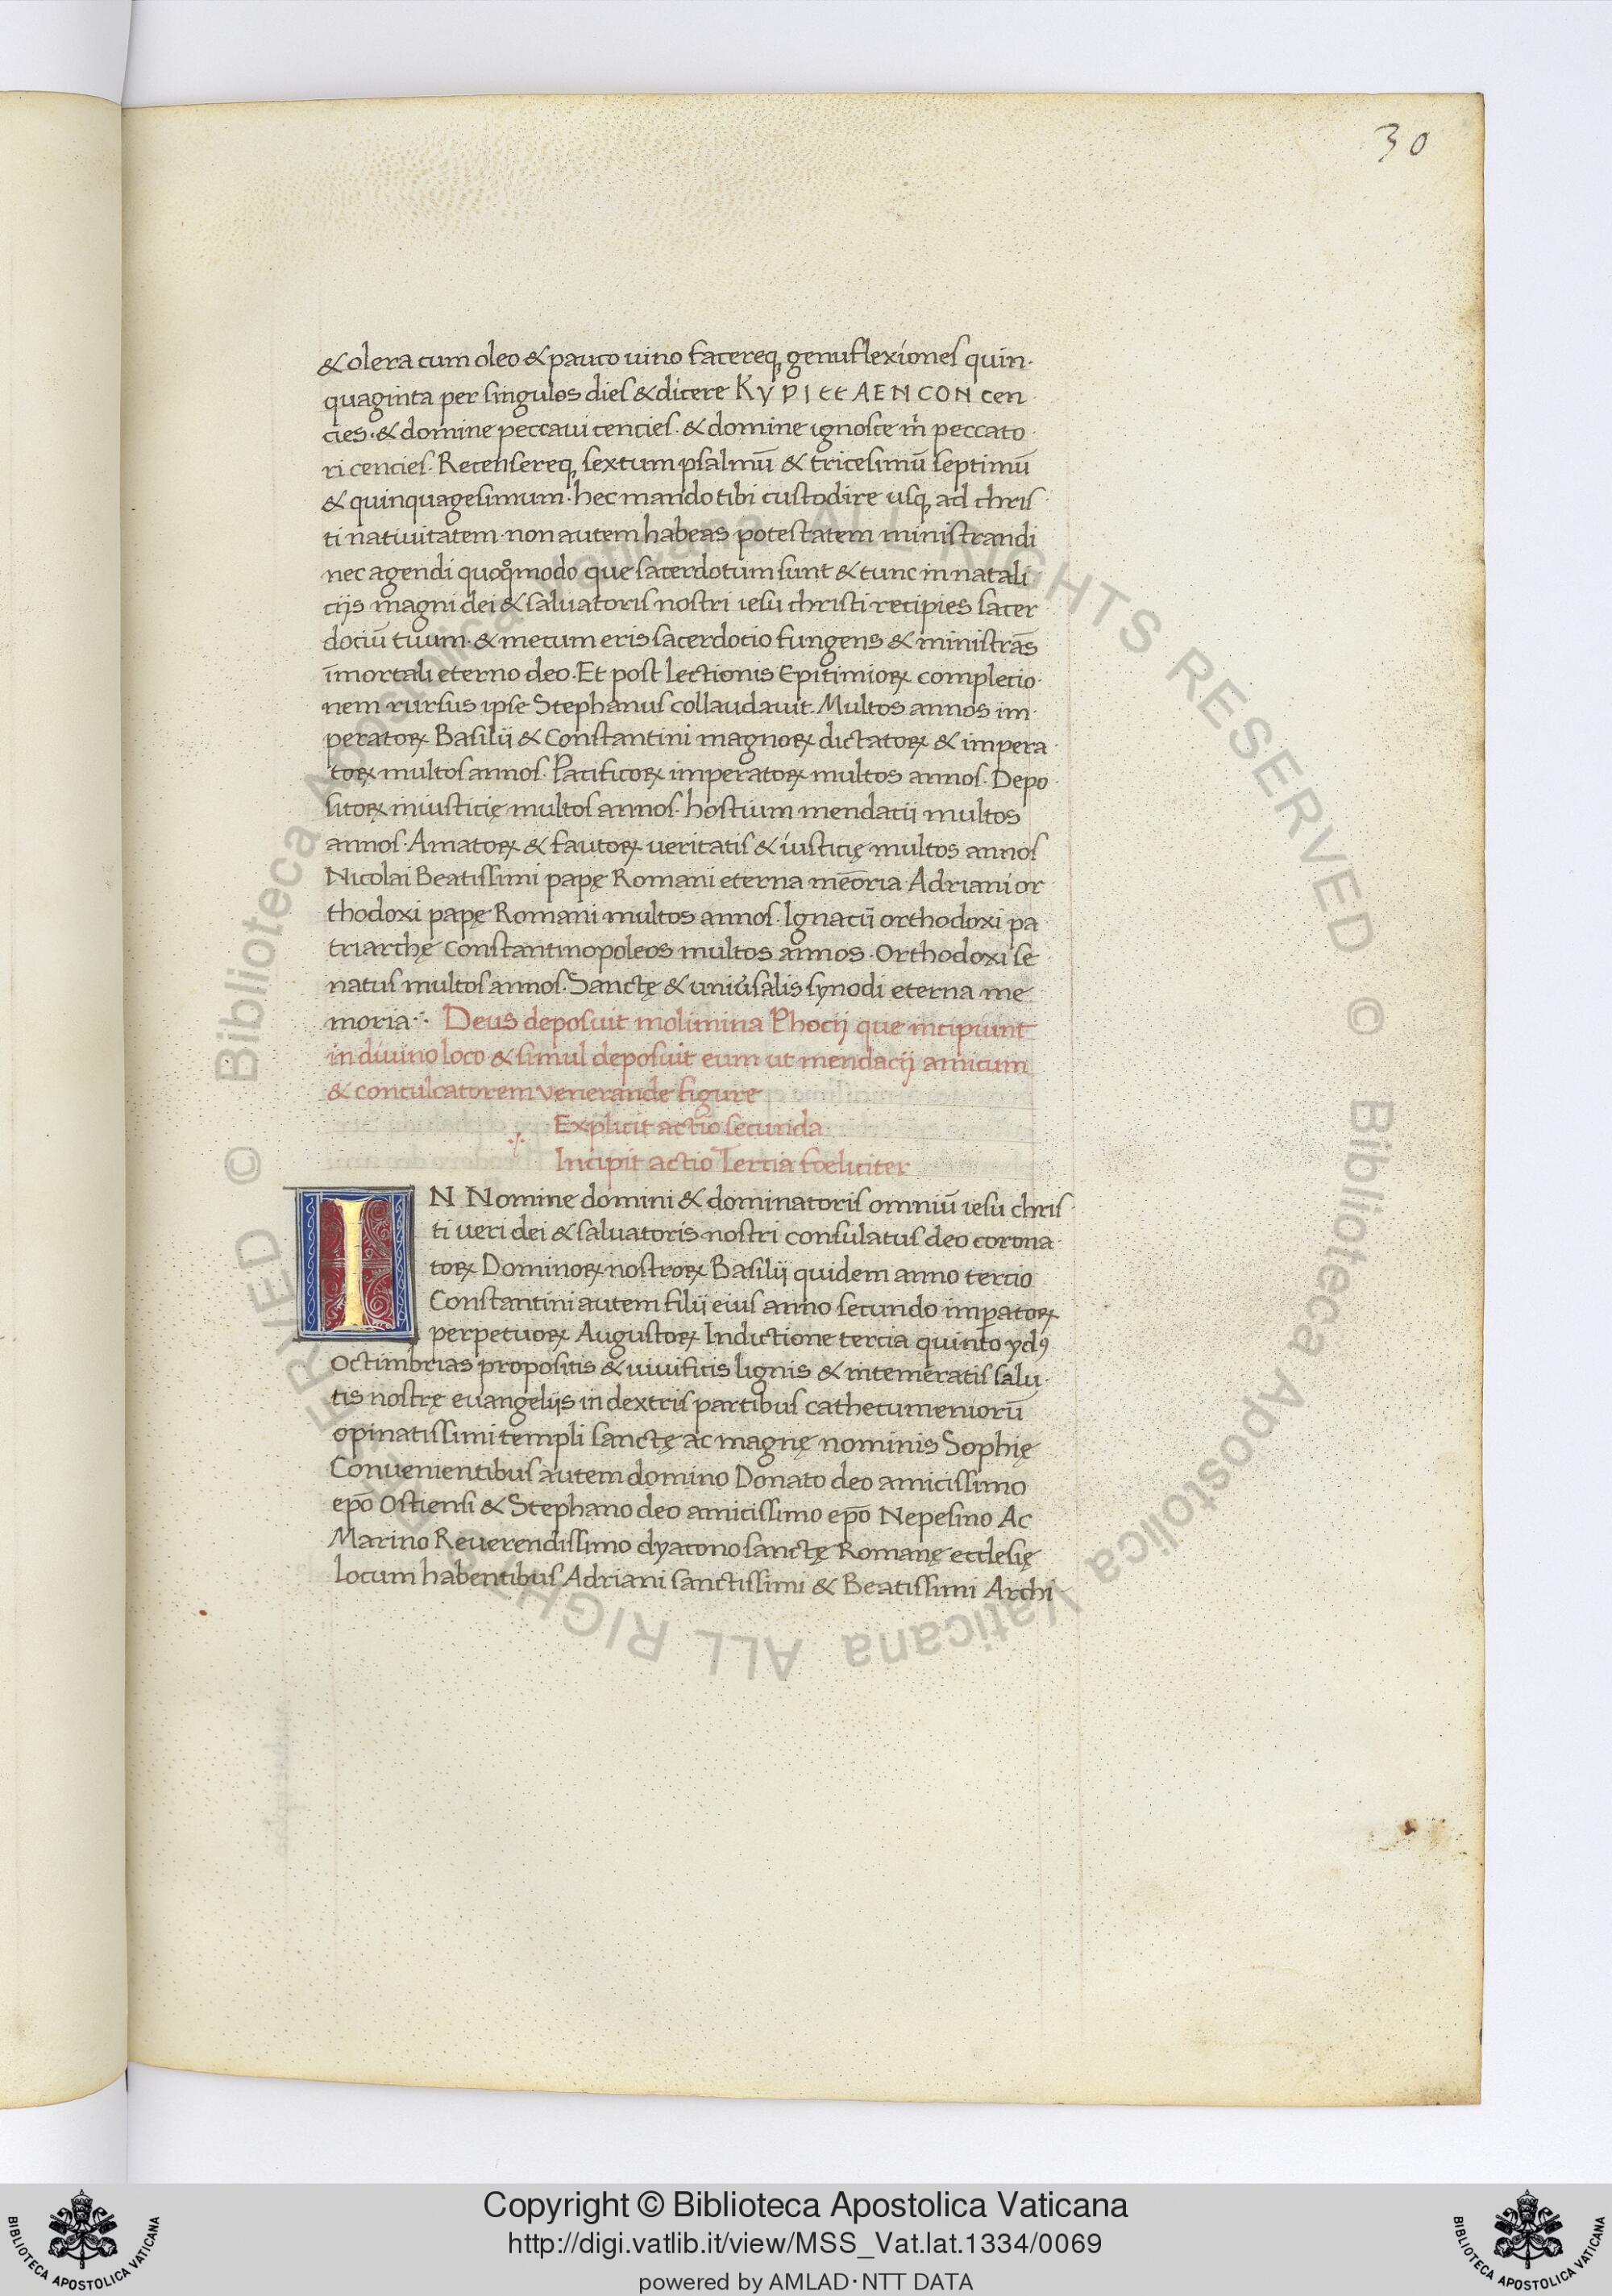 30
& olera cum oleo & pauco uino facereqꝫ genuflexiones quin·
quaginta per singulos dies & dicere KyPIEEAENCON cen
cies·& domine peccaui cencies·& domine ignosce m̄ peccato
ri cencies· Recensereqꝫ sextum psalmū & tricesimū septimū
& quinquagesimum· hec mando tibi custodire usqꝫ ad chris
ti natiuitatem·non autem habeas potestatem ministrandi
nec agendi quoqͦmodo que sacerdotum sunt & tunc in natali
cijs magni dei & saluatoris nostri iesu christi recipies sacer
dociū tuum·& mecum eris sacerdocio fungens & ministrās
īmortali eterno deo· Et post lectionis Epitimioꝝ complecio·
nem rursus ipse Stephanus collaudauit. Multos annos im·
peratoꝝ Basilii & Constantini magnoꝝ dictatoꝝ & impera
toꝝ multos annos· Pacificoꝝ imperatoꝝ multos annos· Depo
sitoꝝ iniusticię multos annos· hostium mendacii multos
annos· Amatoꝝ & fautoꝝ ueritatis & iusticię multos annos
Nicolai Beatissimi papę Romani eterna meōria Adriani or
thodoxi papę Romani multos annos· Ignacii orthodoxi pa
triarchę Constantinopoleos multos annos· Orthodoxi se
natus multos annos· Sanctę & uniu̇salis synodi eterna me
moria·:· Deus deposuit molimina Phocij que incipiunt
in diuino loco & simul deposuit eum ut mendacij amicum
& conculcatorem venerande figure
Explicit actio secunda
Incipit actio Tercia foeliciter
IN Nomine domini & dominatoris omniū iesu chris
ti ueri dei & saluatoris nostri consulatus deo corona
toꝝ Dominoꝝ nostroꝝ Basilij quidem anno tercio
Constantini autem filii eius anno secundo imꝑatoꝝ
perpetuoꝝ Augustoꝝ Inductione tercia quinto ydꝰ
octimbrias propositis & uiuificis lignis & intemeratis salu·
tis nostrę euangelijs in dextris partibus cathecumeniorū
opinatissimi templi sanctę ac magnę nominis Sophię
Conuenientibus autem domino Donato deo amicissimo
epō Ostiensi & Stephano deo amicissimo epō Nepesino Ac
Marino Reuerendissimo dyacono sanctę Romanę ecclesię
locum habentibus Adriani sanctissimi & Beatissimi Archi
© Biblioteca Apostolica Vaticana ALL RIGHTS RESERVED © Biblioteca Apostolica Vaticana ALL RIGHTS RESERVED
Copyright © Biblioteca Apostolica Vaticana
http://digi.vatlib.it/view/MSS_Vat.lat.1334/0069
powered by AMLAD·NTT DATA
BIBLIOTECA APOSTOLICA VATICANA
BIBLIOTECA APOSTOLICA VATICANA